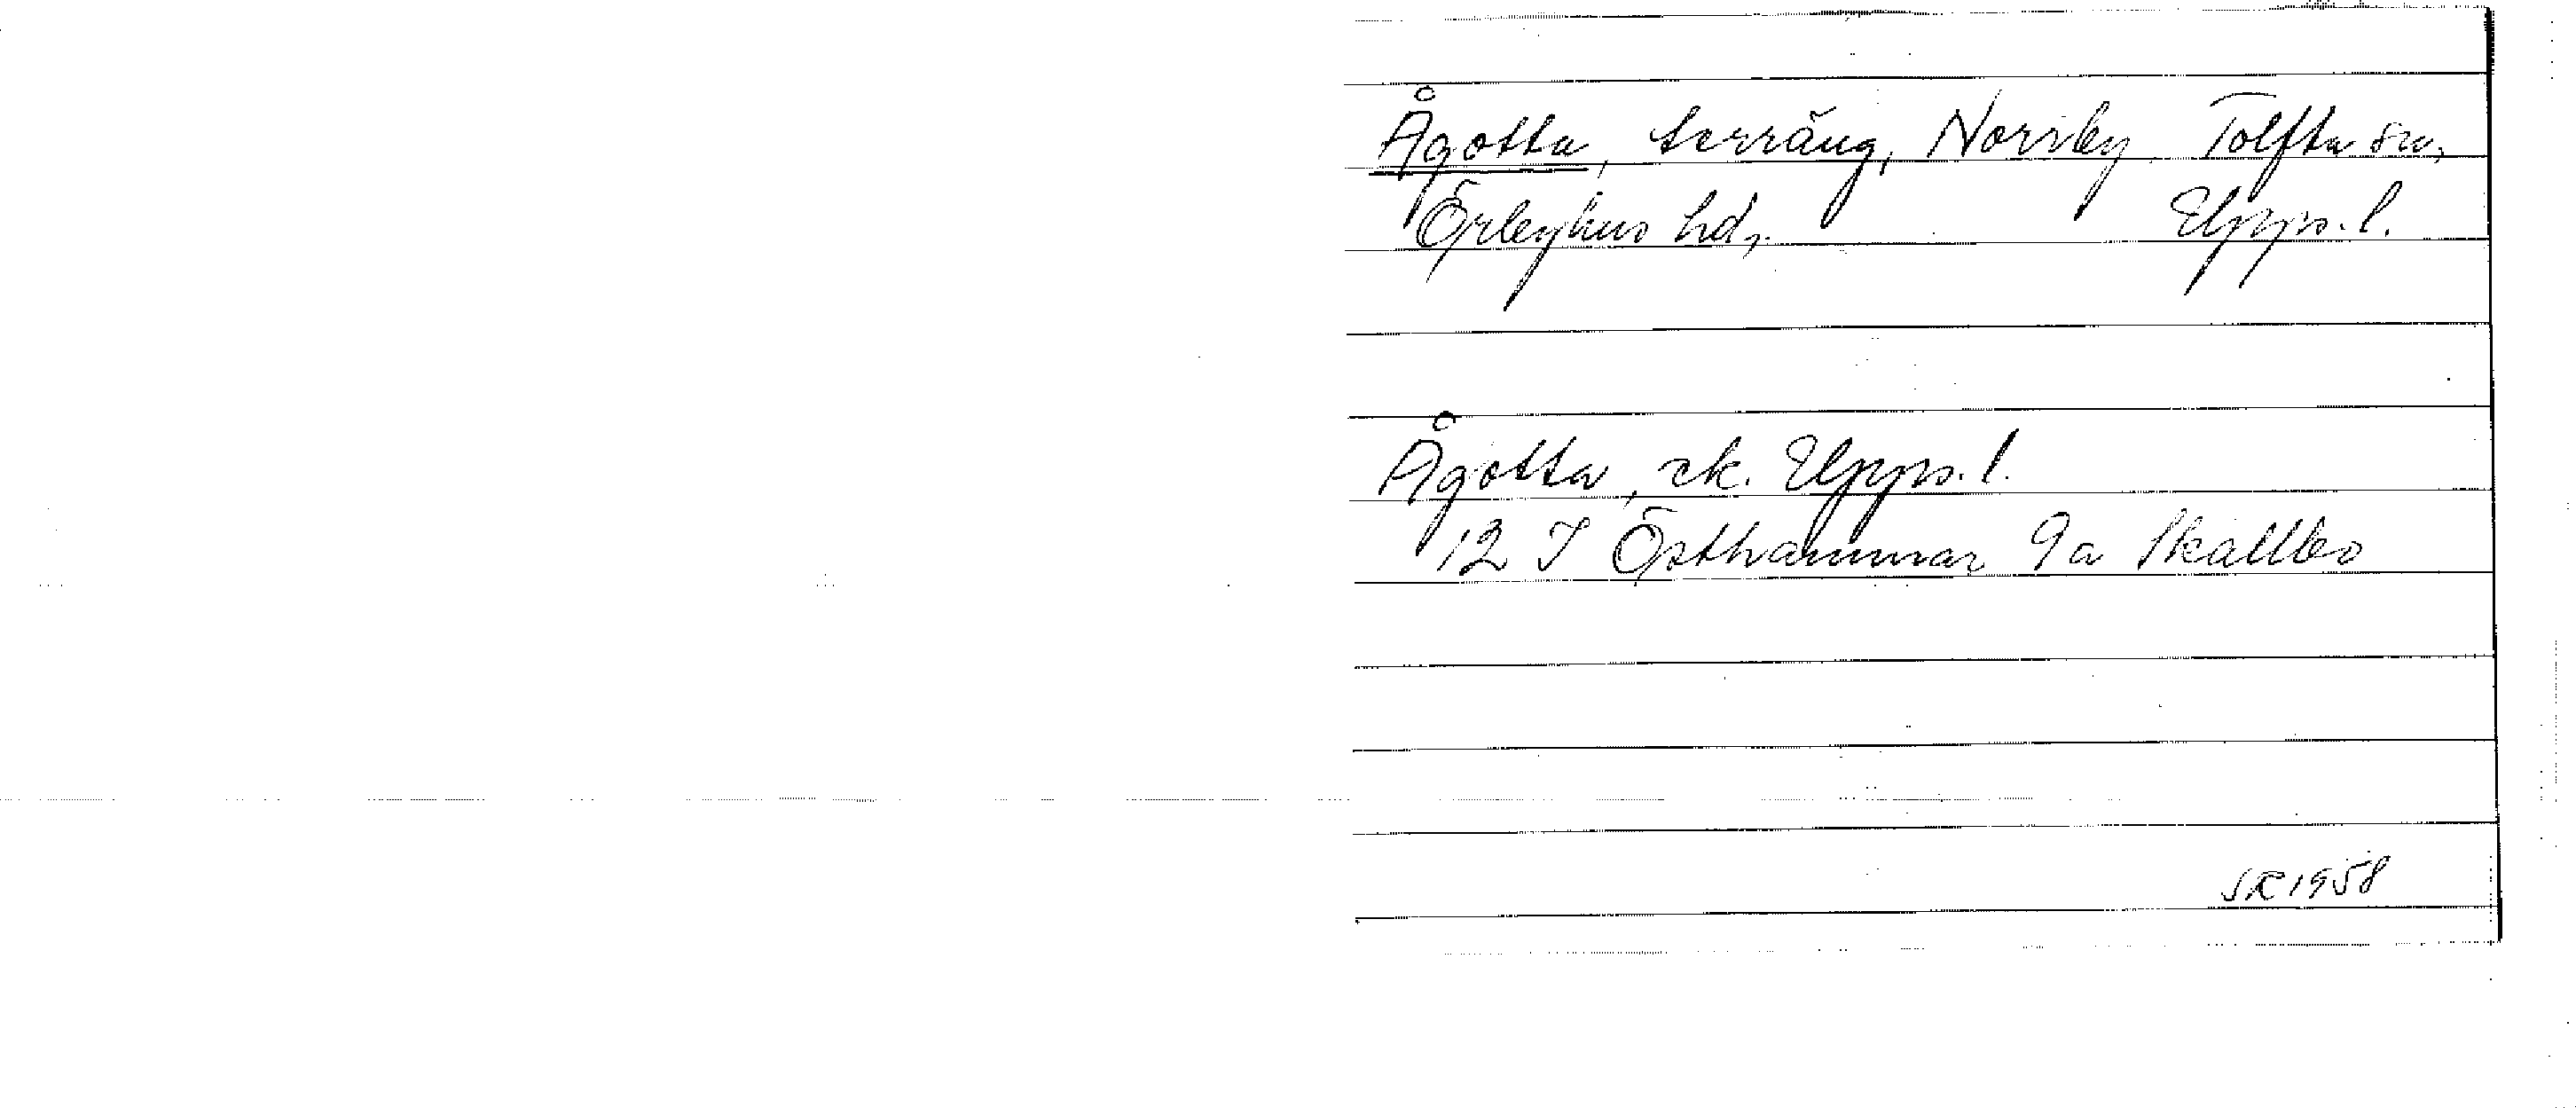 Ågotta, terräng, Norrby, Tolfta sn,
Örbyhus hd, Upps. l.
Ågotta, ek. Upps. l.
12 I Östhammar 9a Skallbo
SK 1958